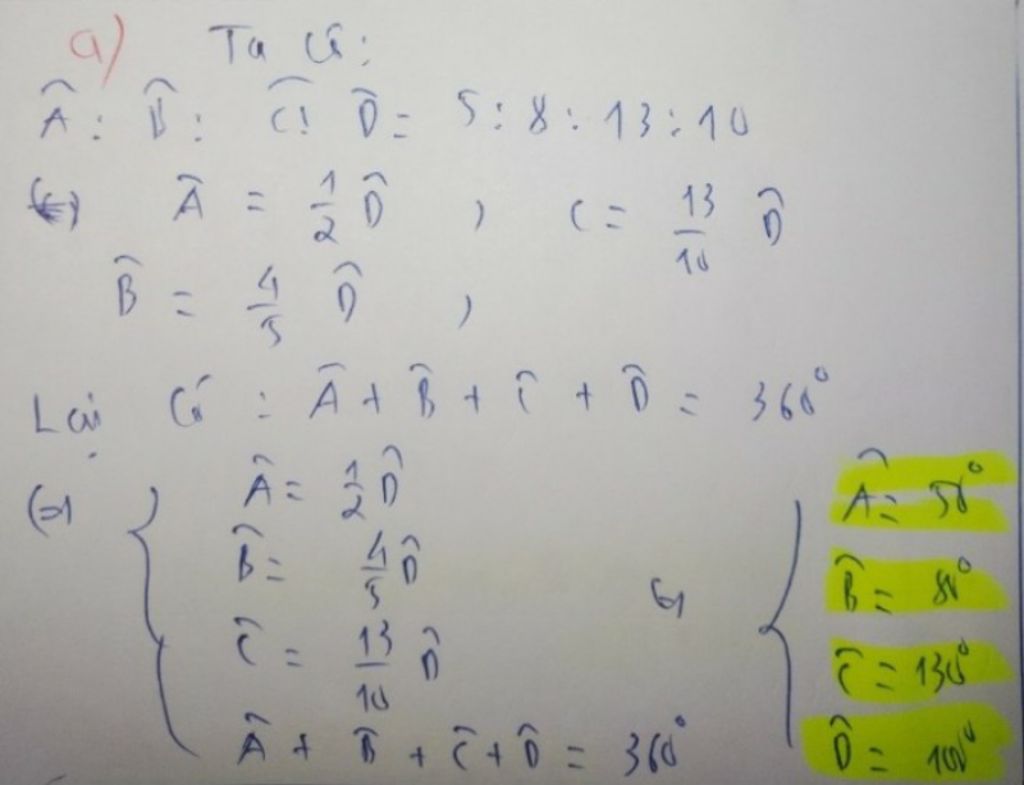 a) Ta có:
Â : B̂ : Ĉ : D̂ = 5 : 8 : 13 : 10
(=) Â = 1/2 D̂ , C = 13/10 D̂
B̂ = 4/5 D̂ ,
Lại có : Â + B̂ + Ĉ + D̂ = 360°
(=) { Â = 1/2 D̂
B̂ = 4/5 D̂
Ĉ = 13/10 D̂
Â + B̂ + Ĉ + D̂ = 360°
(=) { Â = 50°
B̂ = 80°
Ĉ = 130°
D̂ = 100°